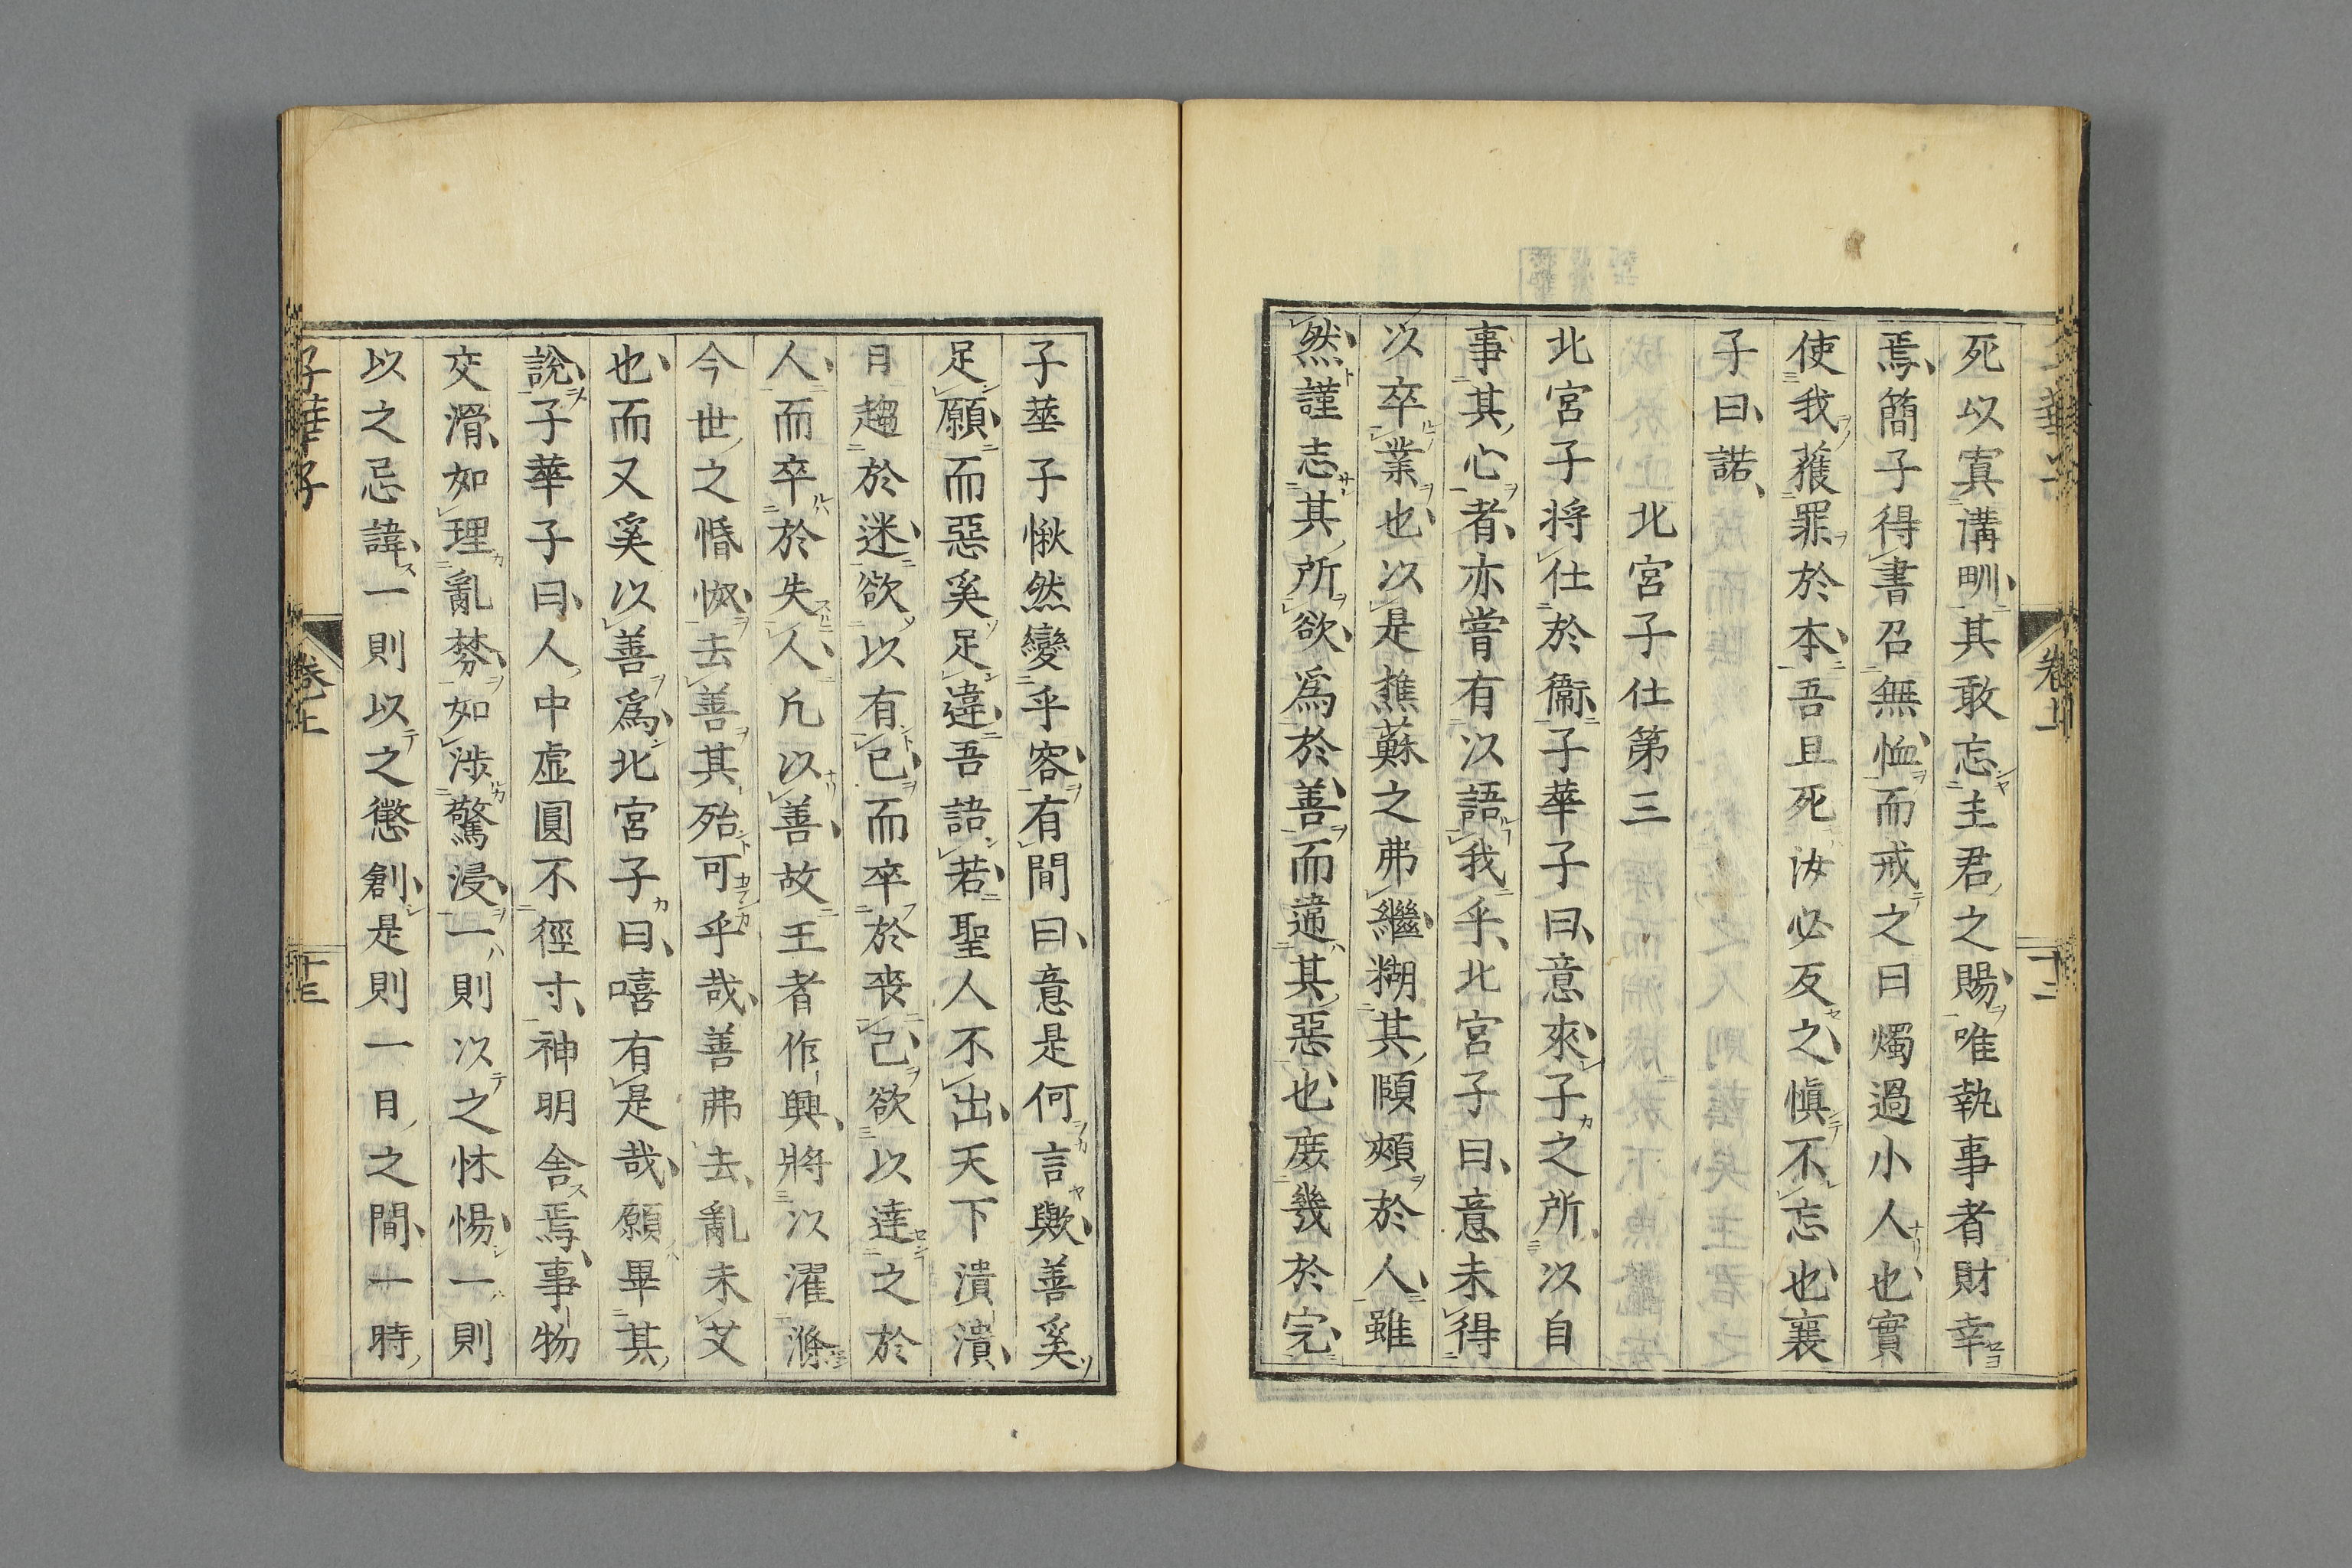 死以寘溝甽其敢忘主君之賜唯執事者財幸
焉簡子得書召無恤而戒之曰燭過小人也實
使我獲罪於本吾且死汝必反之愼不忘也襄
子曰諾
北宮子仕第三
北宮子將仕於衞子華子曰意來子之所以自
事其心者亦嘗有以語我乎北宮子曰意未得
以卒業也以是樵蘇之弗繼糊其頤頰於人雖
然謹志其所欲爲於善而違其惡也庻幾於完
子華子愀然變乎容有間曰意是何言歟善奚
足願而惡奚足違吾語若聖人不出天下潰潰
日趨於迷欲以有已而卒於喪己欲以達之於
人而卒於失人凢以善故王者作興將以濯滌
今世之惛怓去善其殆可乎哉善弗去亂未艾
也而又奚以善爲北宮子曰嘻有是哉願畢其
說子華子曰人中虛圓不徑寸神明舍焉事物
交滑如理亂棼如涉驚浸一則以之怵惕一則
以之忌諱一則以之懲創是則一日之間一時
子華子
卷上
十三